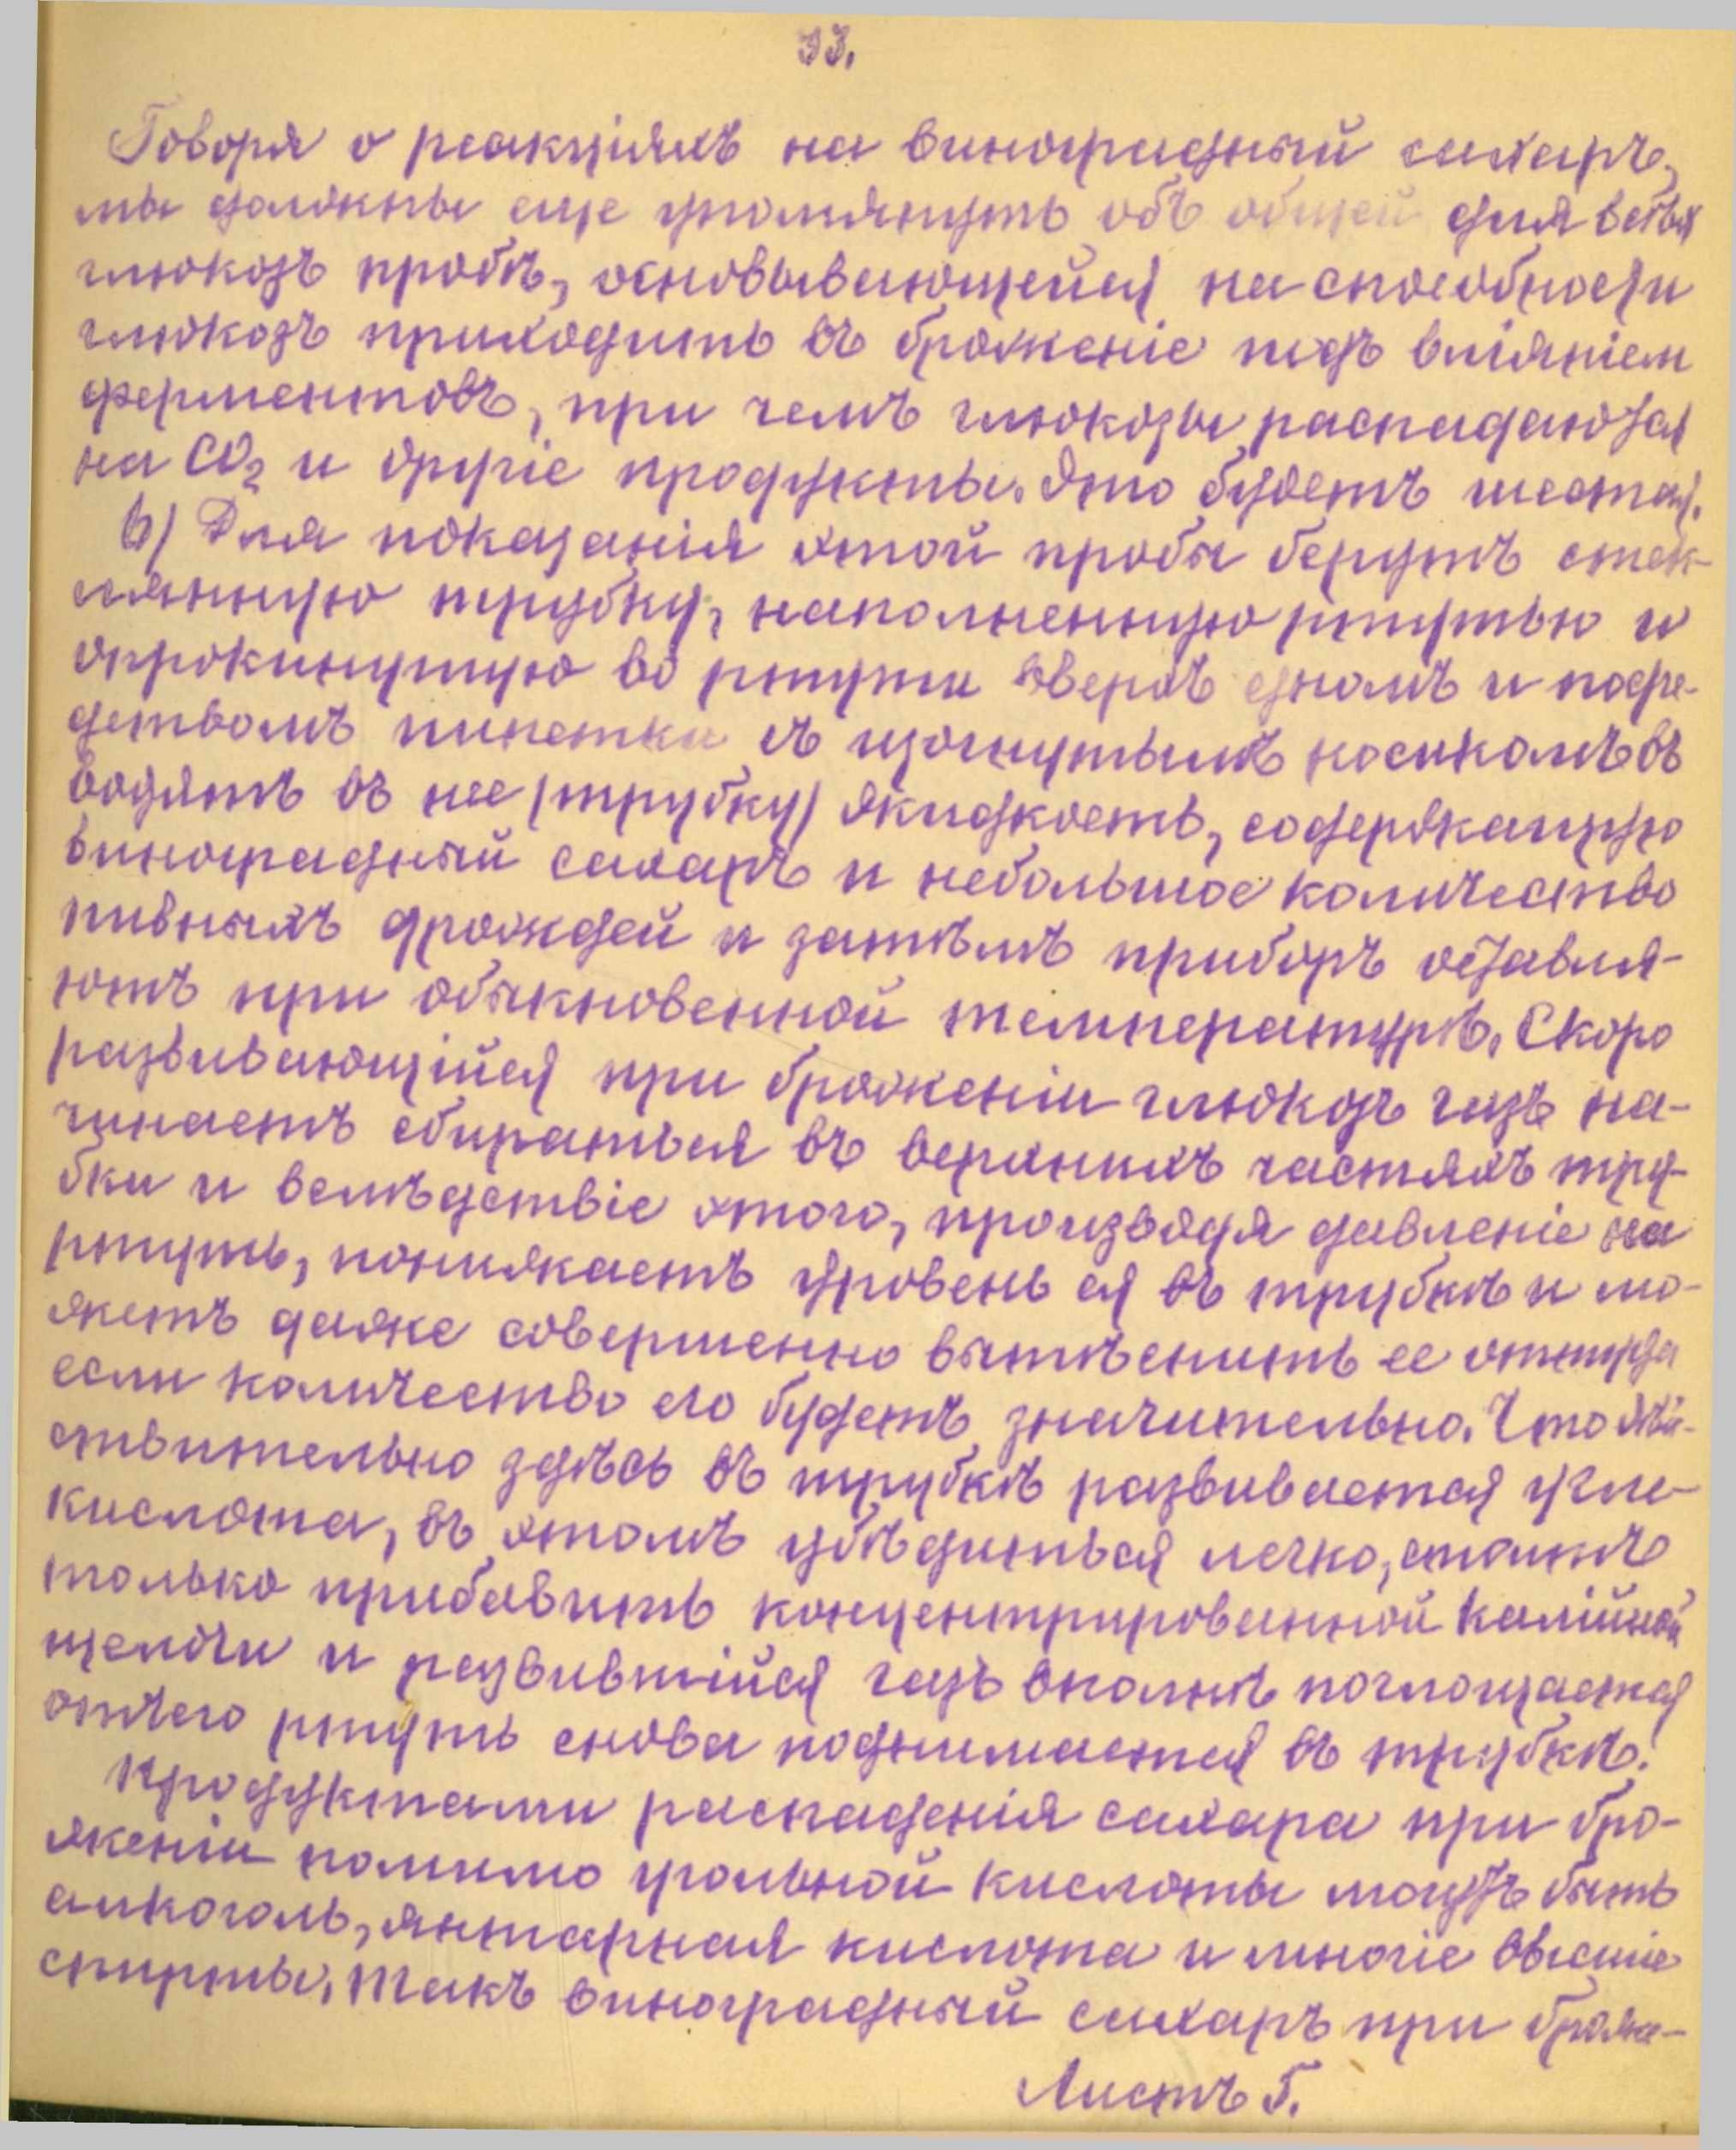 33.
Говоря о реакціяхъ на виноградный сахаръ,
мы должны еще упомянуть объ общей для всѣхъ
глюкозъ пробѣ, основывающейся на способности
глюкозъ приходить въ броженіе подъ вліяніем
ферментовъ, при чемъ глюкозы распадаются
на CO₂ и другіе продукты. Это будетъ шестая.
6) Для показанія этой пробы берутъ стек-
лянную трубку, наполненную ртутью и
опрокинутую во ртути вверхъ дномъ и посре-
дствомъ пипетки съ изогнутымъ носикомъ въ
водятъ въ нее (трубку) жидкость, содержащую
виноградный сахаръ и небольшое количество
пивныхъ дрожжей и затѣмъ приборъ оставля-
ютъ при обыкновенной температурѣ. Скоро
развивающійся при броженіи глюкозъ газъ на-
чинаетъ сбираться въ верхнихъ частяхъ тру-
бки и вслѣдствіе этого, производя давленіе на
ртуть, понижаетъ уровень ея въ трубкѣ и мо-
жетъ даже совершенно вытѣснить ее оттуда
если количество его будетъ значительно. Что дѣй-
ствительно здѣсь въ трубкѣ развивается угле-
кислота, въ этомъ убѣдиться легко, стоитъ
только прибавить концентрированной калійной
щелочи и развившійся газъ вполнѣ поглощается
отчего ртуть снова поднимается въ трубкѣ.
Продуктами распаденія сахара при бро-
женіи помимо угольной кислоты могутъ быть
алкоголь, янтарная кислота и многіе высшіе
спирты. Такъ виноградный сахаръ при броже-
Листъ 5.